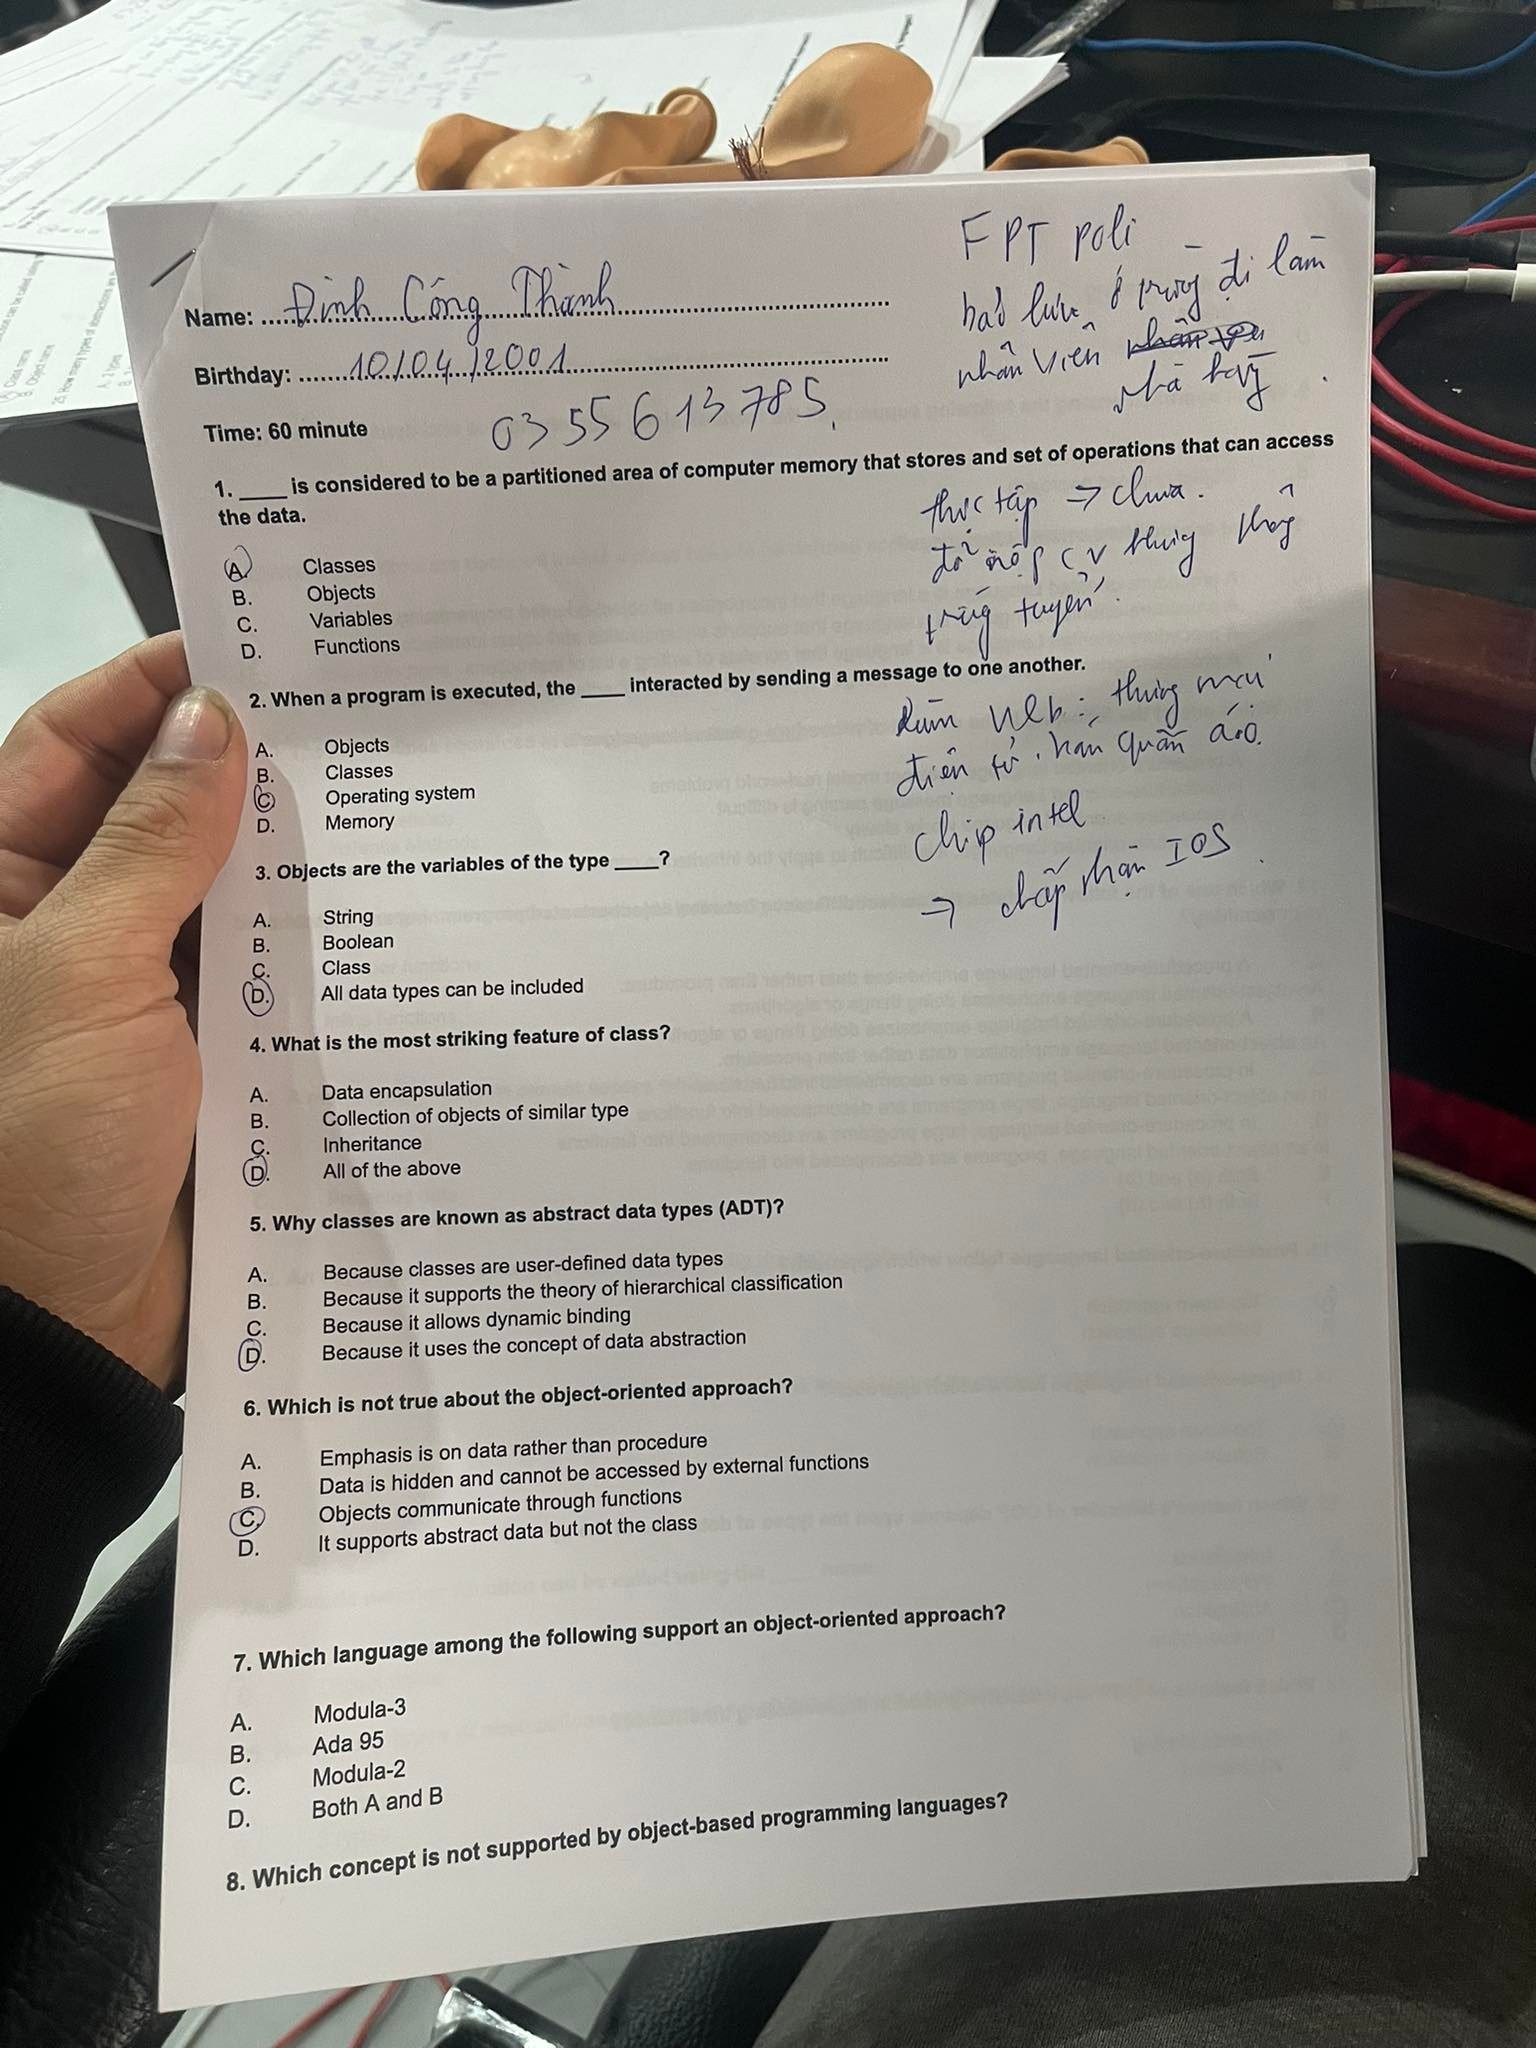 FPT poli
bảo lưu ở trường đi làm
nhân viên
nhà hàng
Name: Đinh Công Thành
Birthday: 10/04/2001
Time: 60 minute
0355613785.
1. ____ is considered to be a partitioned area of computer memory that stores and set of operations that can access
the data.
thực tập → chưa.
đã nộp CV nhưng không
trúng tuyển.
A. Classes
B. Objects
C. Variables
D. Functions
2. When a program is executed, the ____ interacted by sending a message to one another.
làm web: thương mại
điện tử. bán quần áo.
chip intel
→ chấp nhận IOS
A. Objects
B. Classes
C. Operating system
D. Memory
3. Objects are the variables of the type ____?
A. String
B. Boolean
C. Class
D. All data types can be included
4. What is the most striking feature of class?
A. Data encapsulation
B. Collection of objects of similar type
C. Inheritance
D. All of the above
5. Why classes are known as abstract data types (ADT)?
A. Because classes are user-defined data types
B. Because it supports the theory of hierarchical classification
C. Because it allows dynamic binding
D. Because it uses the concept of data abstraction
6. Which is not true about the object-oriented approach?
A. Emphasis is on data rather than procedure
B. Data is hidden and cannot be accessed by external functions
C. Objects communicate through functions
D. It supports abstract data but not the class
7. Which language among the following support an object-oriented approach?
A. Modula-3
B. Ada 95
C. Modula-2
D. Both A and B
8. Which concept is not supported by object-based programming languages?